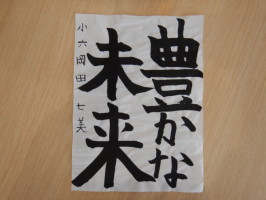 豊かな
未来
小六 岡田 七美